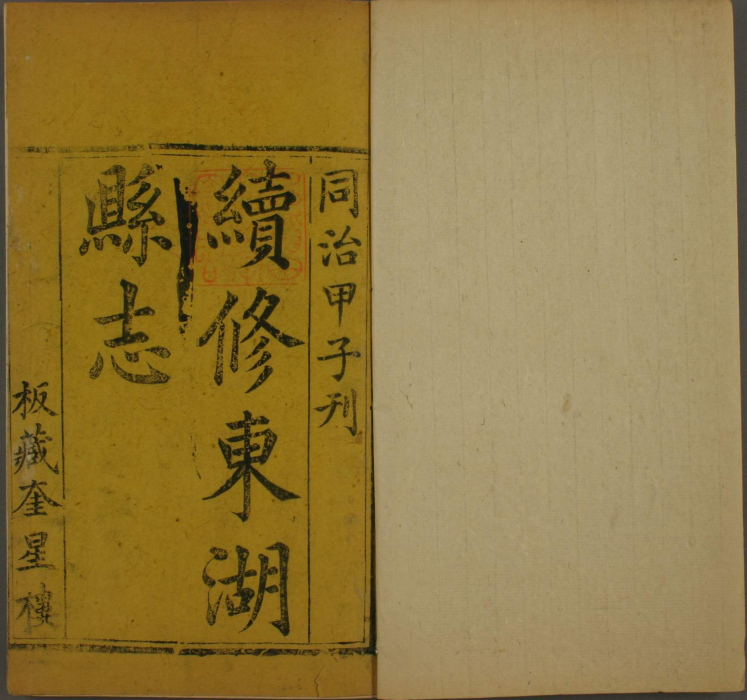 同治甲子刊
續修東湖
縣志
板藏奎星樓